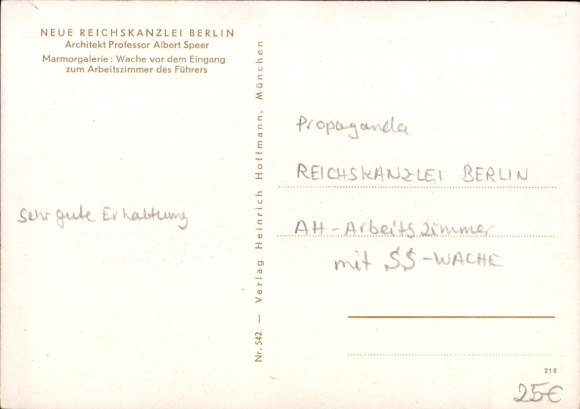 NEUE REICHSKANZLEI BERLIN
Architekt Professor Albert Speer
Marmorgalerie: Wache vor dem Eingang
zum Arbeitszimmer des Führers
Sehr gute Erhaltung
Nr. 542 — Verlag Heinrich Hoffmann, München
Propaganda
REICHSKANZLEI BERLIN
AH-Arbeitszimmer
mit SS-WACHE
218
25€